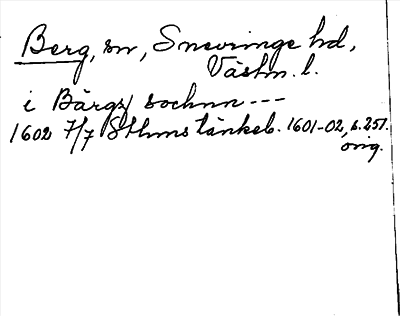 Berg, sn, Snevringe hd,
Västm. l.
i Bärgz sochnn ---
1602 7/7 Sthms tänkeb. 1601-02, s. 257.
orig.